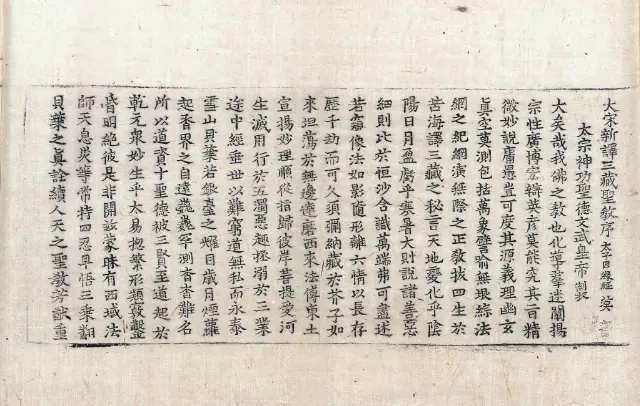 大宋新譯三藏聖教序
太宗神功聖德文武皇帝製
大矣哉我佛之教也化導群迷闡揚
宗性廣博宏辯英彥莫能究其旨精
微妙說庸愚豈可度其源義理幽玄
真空莫測包括萬象譬喻無垠綜法
網之紀綱演無際之正教拔四生於
苦海譯三藏之秘言天地變化乎陰
陽日月盈虧乎寒暑大則說諸善惡
細則比於恒沙含識萬端弗可盡述
若窺像法如影隨形離六情以長存
歷千劫而可久須彌納藏於芥子如
來坦蕩於無邊達磨西來法傳東土
宣揚妙理順從指歸彼岸菩提愛河
生滅用行於五濁惡趣拯溺於三業
途中經垂世以難窮道無私而永泰
雪山貝葉若銀臺之耀目歲月煙蘿
起香界之自遠巍巍罕測杳杳難名
所以道資十聖德被三賢至道起於
乾元衆妙生乎太易揔繁形類鼓鑿
昏明絕彼是非開茲蒙昧有西域法
師天息災等常持四忍早悟三乘翻
貝葉之真詮續人天之聖教芳猷重